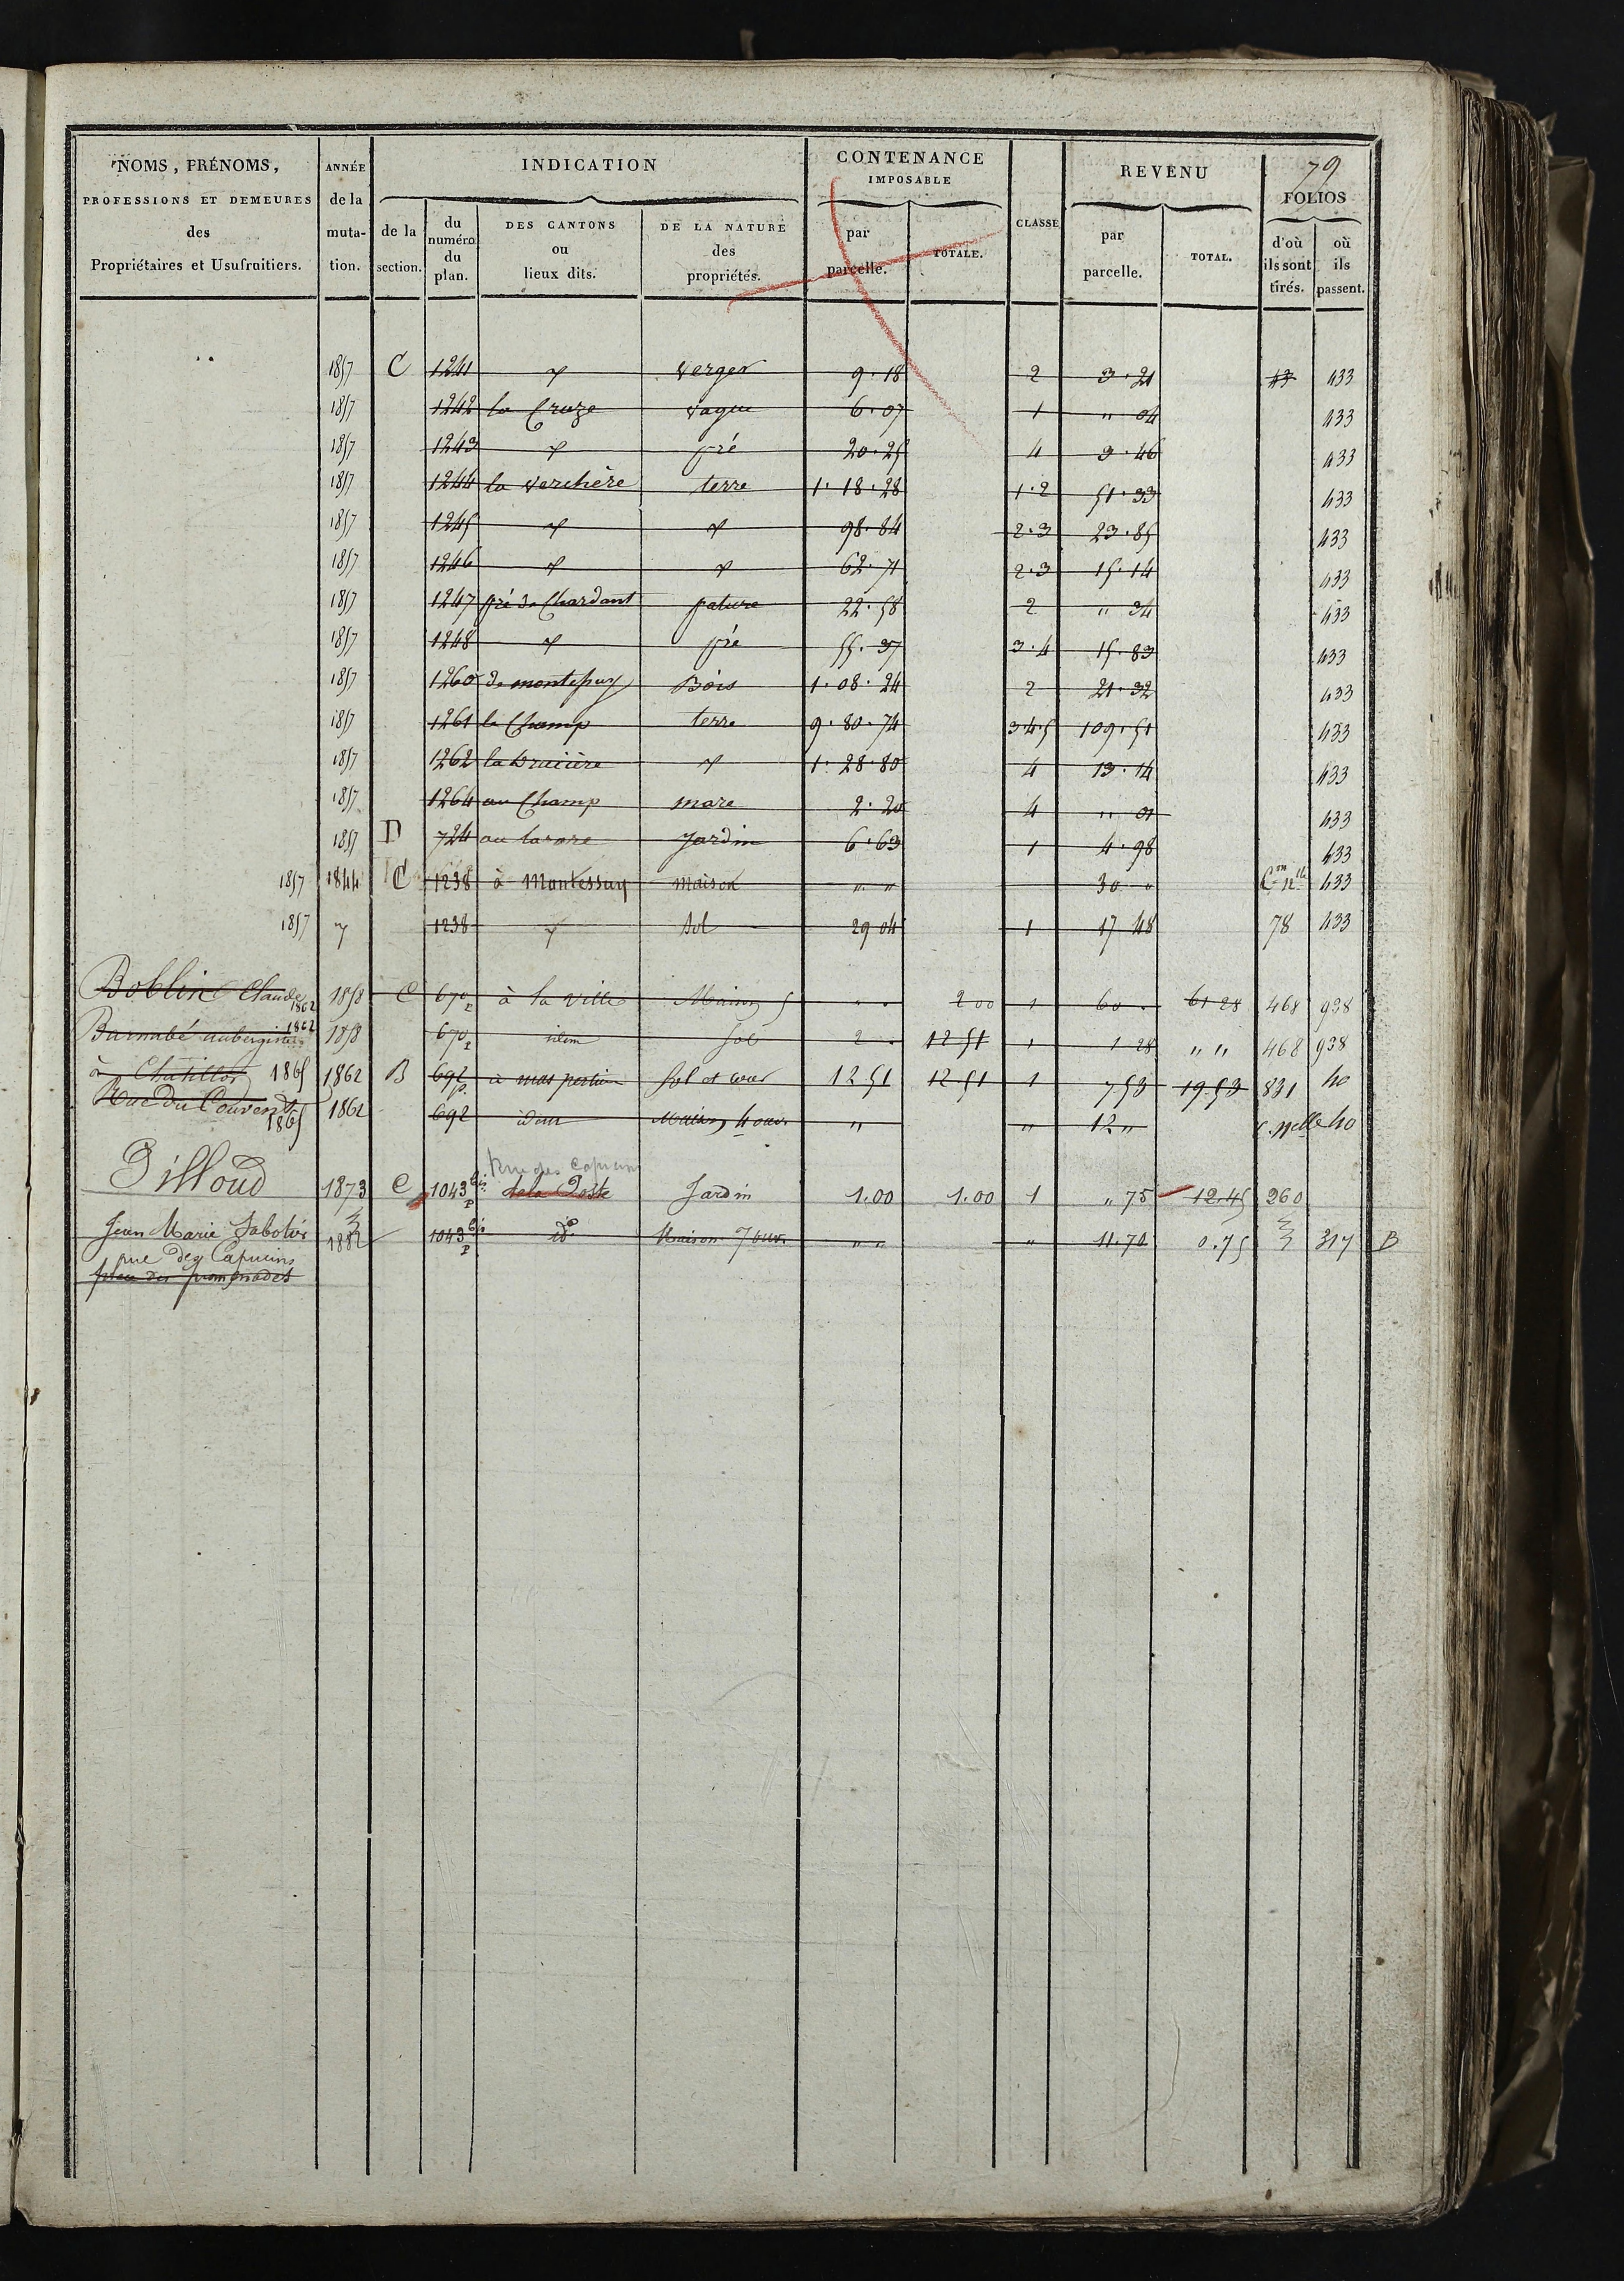 79
NOMS, PRÉNOMS, PROFESSIONS ET DEMEURES des Propriétaires et Usufruitiers.
ANNÉE de la muta- tion.
INDICATION
de la section.
du numéro du plan.
DES CANTONS ou lieux dits.
DE LA NATURE des propriétés.
CONTENANCE IMPOSABLE
par parcelle.
TOTALE.
CLASSE
REVENU
par parcelle.
TOTAL.
FOLIOS
d'où ils sont tirés.
où ils passent.
1857 C 1241 verger 9.18 2 3.21 433
1857 1242 la Cruze vague 6.07 1 " 04 433
1857 1243 pré 20.25 4 3.46 433
1857 1244 la verchère terre 1.18.28 1.2 51.33 433
1857 1245 98.84 2.3 23.85 433
1857 1246 62.71 2.3 15.14 433
1857 1247 pré de Chardant pature 22.58 2 " 34 433
1857 1248 pré 55.37 3.4 15.83 433
1857 1260 de montepuy Bois 1.08.24 2 21.32 433
1857 1261 le Champ terre 9.80.74 3.4.5 109.51 433
1857 1262 1.28.80 4 13.14 433
1857 1264 au Champ mare 2.20 4 " 01 433
1857 D 724 au Jardin 6.63 1 4.98 433
1857 1844 C 1238 à Montessuy maison " " 30 " 433
1857 1238 sol 29 04 1 17 48 78 433
Boblin Claude 1862 1858 C 670 p à la ville Maison 5 " . 2 00 1 60 . 61 28 468 938
Barnabé aubergiste 1862 1858 670 p idem sol 2 . 12 51 1 1 28 " " 468 938
à Chatillon 1865 1862 B 692 p. à mas Sol et cour 12 51 12 51 1 7.53 19.53 831 40
Rue du Couvent 1865 1862 692 idem Maison 4 ouv. " " 12 " C. Nelle 40
Rue des Capucins
Pilloud 1873 C 1043 bis p de la Poste Jardin 1.00 1.00 1 " 75 12.45 260
Jean Marie Sabotier 1882 1043 bis p do Maison 7 ouv. " " " 11.70 0.75 317 B
rue des Capucins
place des promenades